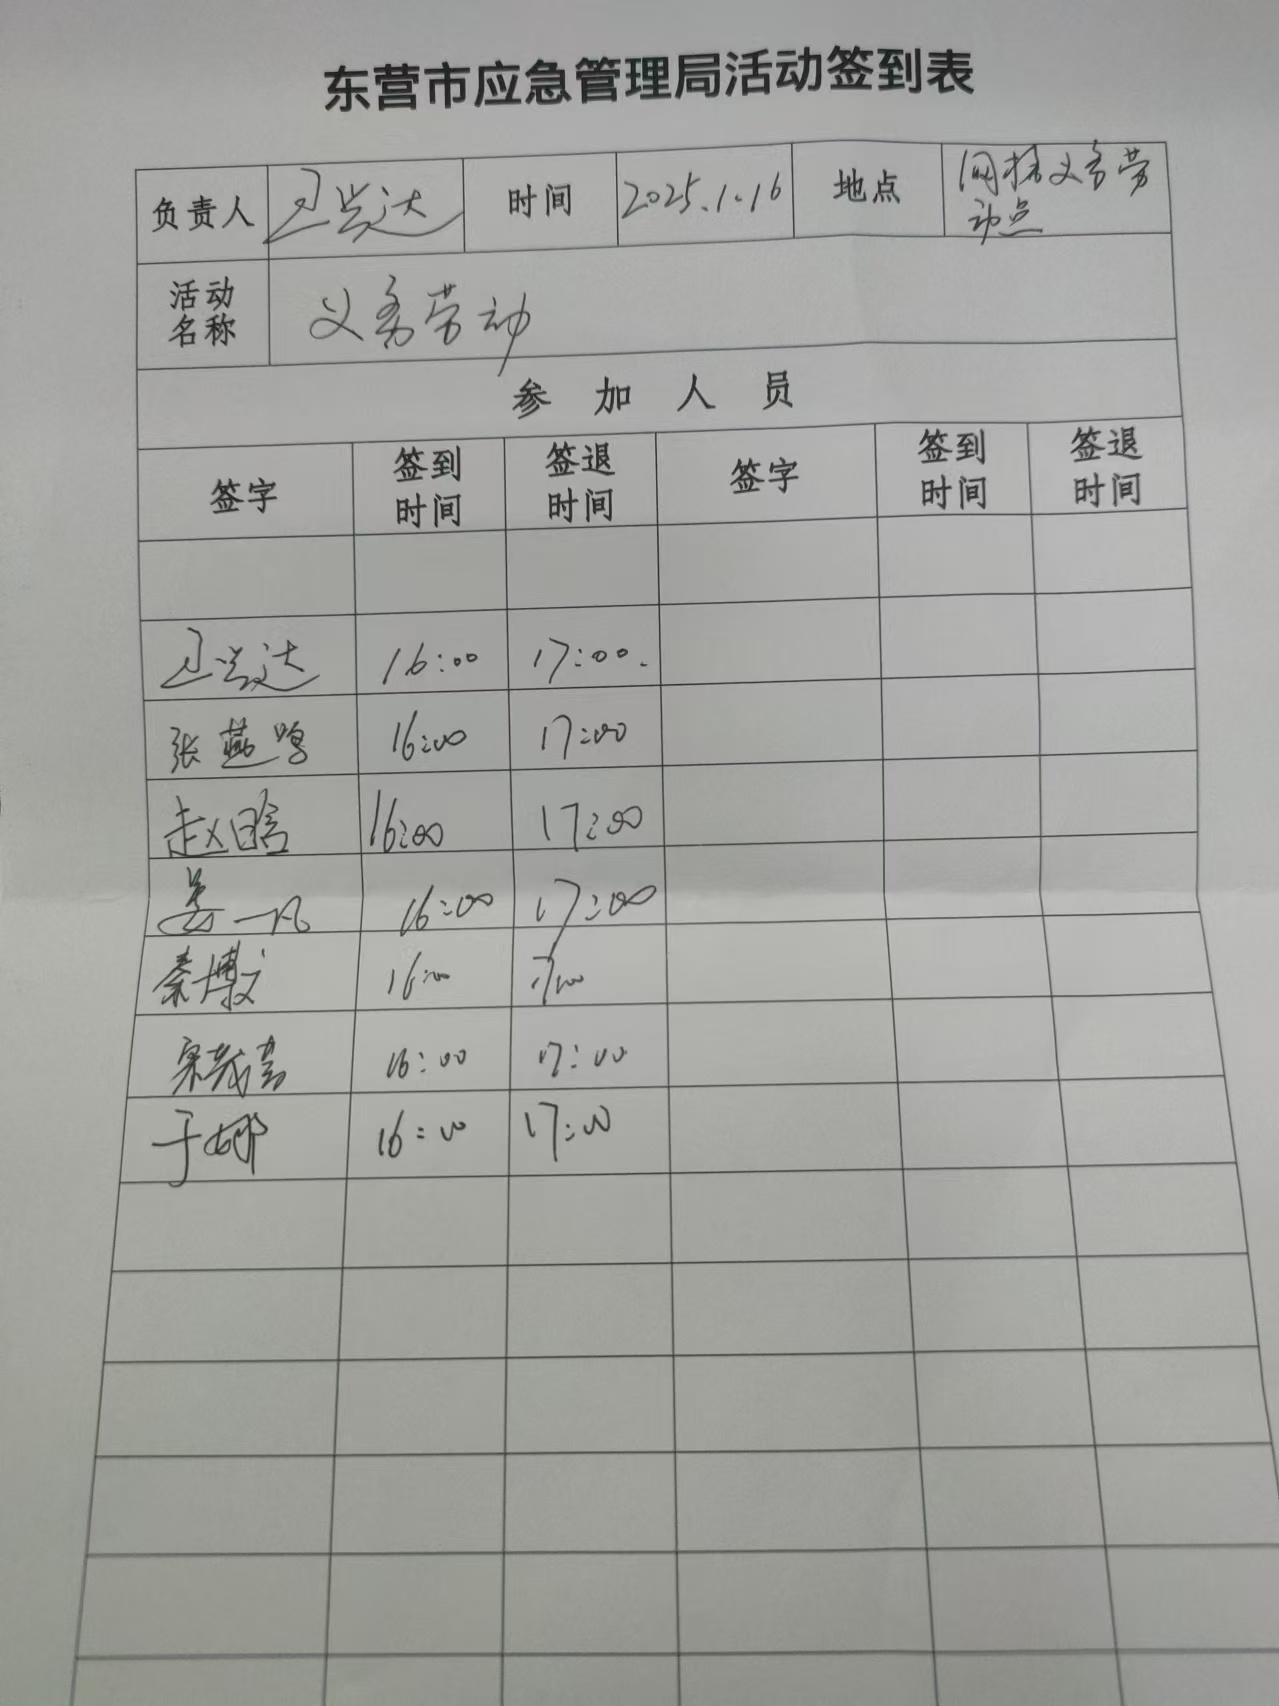 东营市应急管理局活动签到表
负责人 卫兴达 时间 2025.1.16 地点 网格义务劳
动点
活动
名称 义务劳动
参加人员
签字 签到
时间 签退
时间 签字 签到
时间 签退
时间
卫兴达 16:00 17:00.
张燕鸣 16:00 17:00
赵晗 16:00 17:00
姜一凡 16:00 17:00
秦博文 16:00 17:00
宋 16:00 17:00
于娜 16:00 17:00